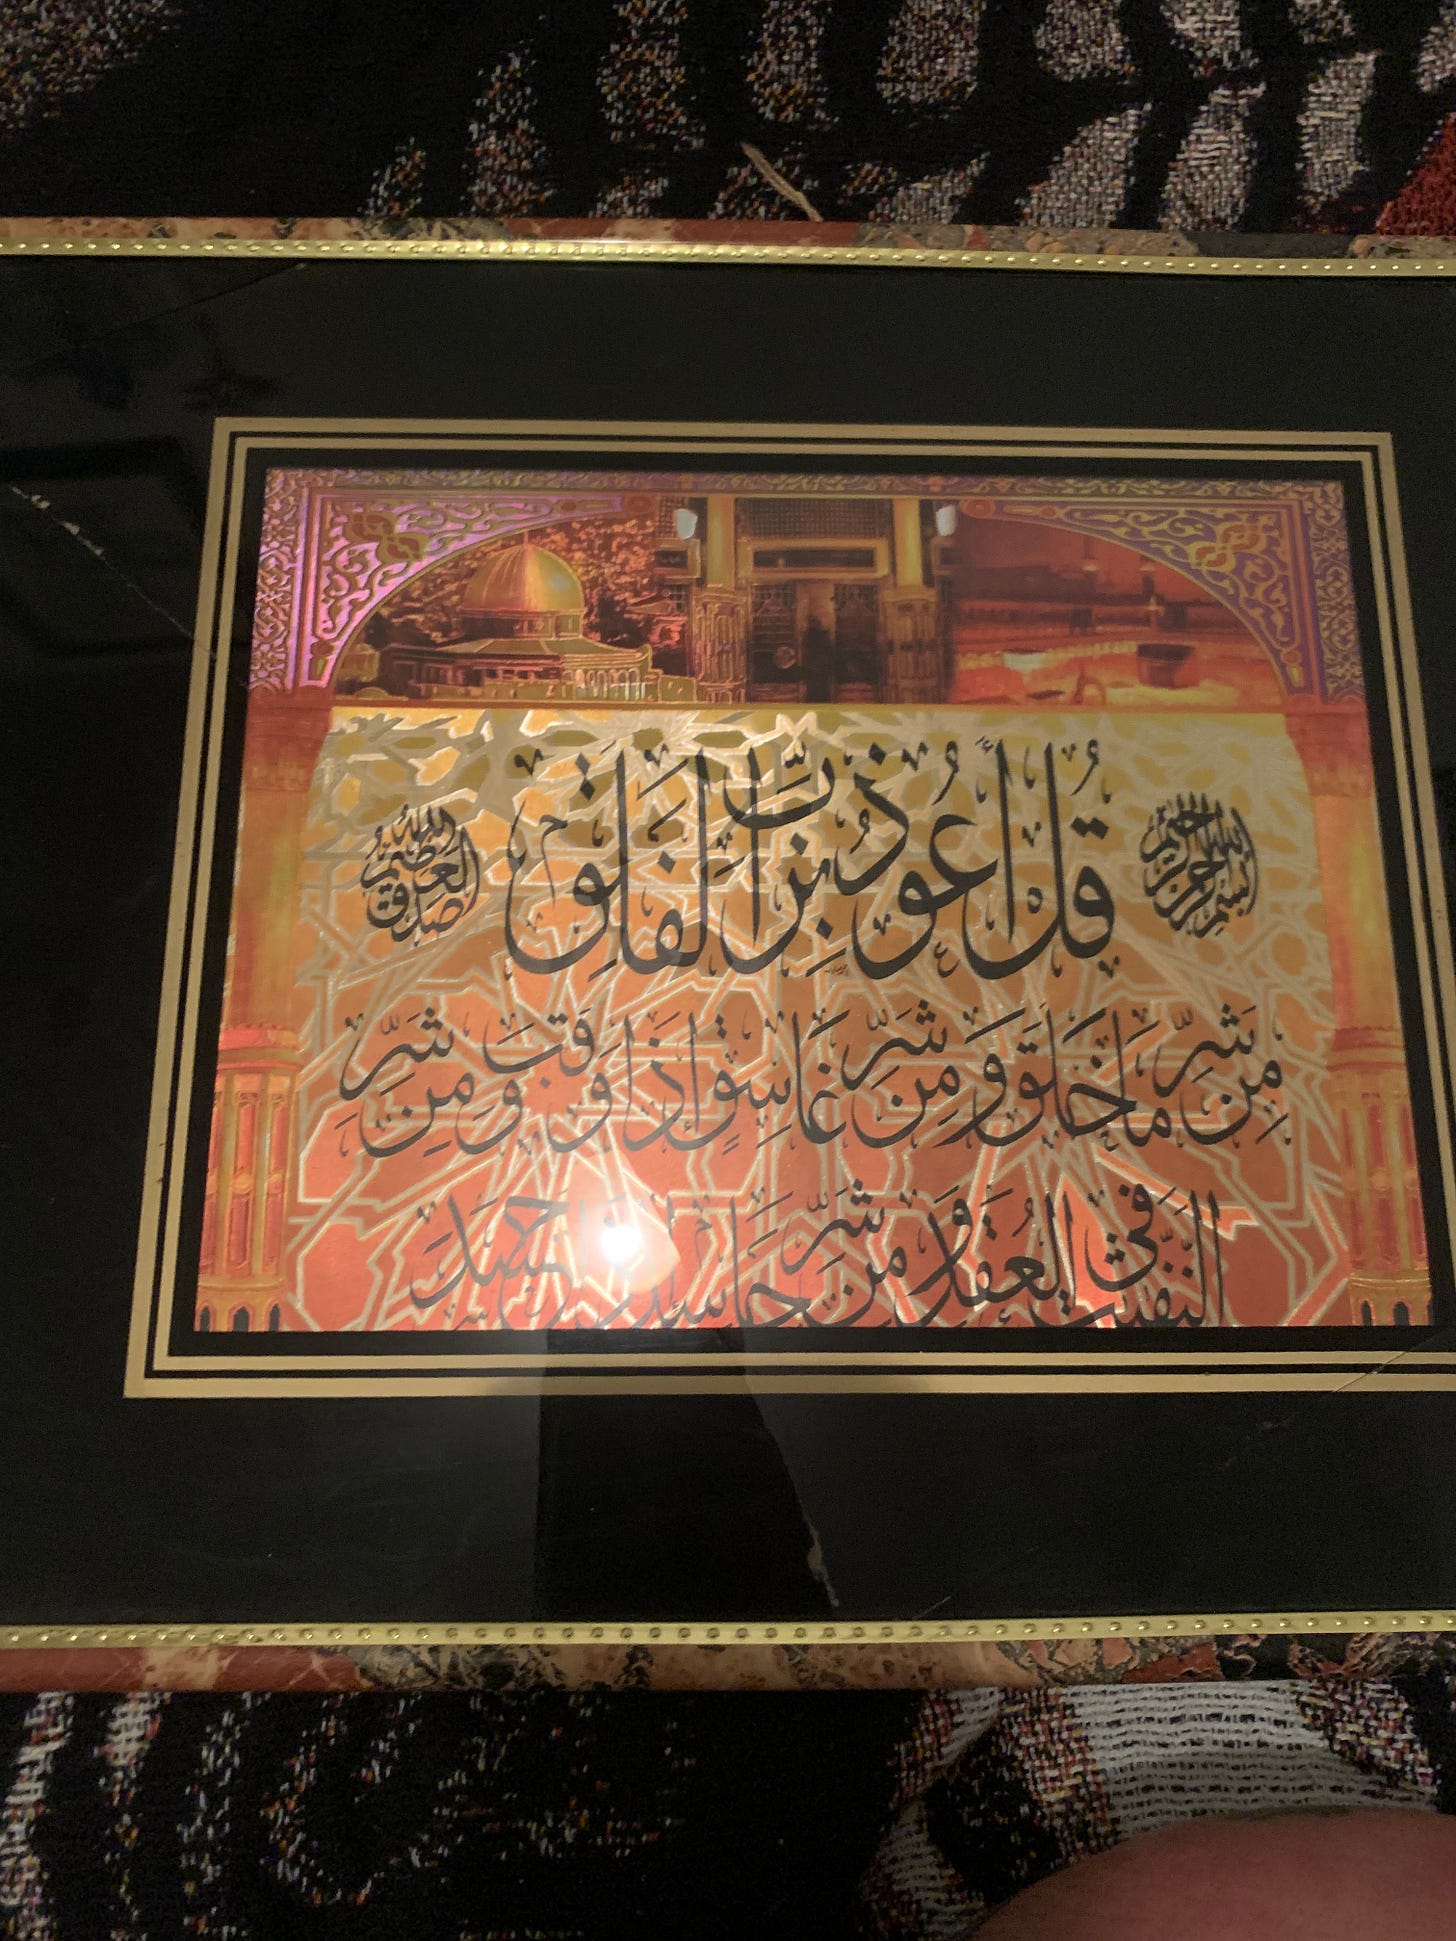 بسم الله الرحمن الرحيم
قُلْ أَعُوذُ بِرَبِّ الْفَلَقِ
صدق الله العظيم
مِن شَرِّ مَا خَلَقَ وَمِن شَرِّ غَاسِقٍ إِذَا وَقَبَ وَمِن شَرِّ
النَّفَّٰثَٰتِ فِي الْعُقَدِ وَمِن شَرِّ حَاسِدٍ حَسَدَ